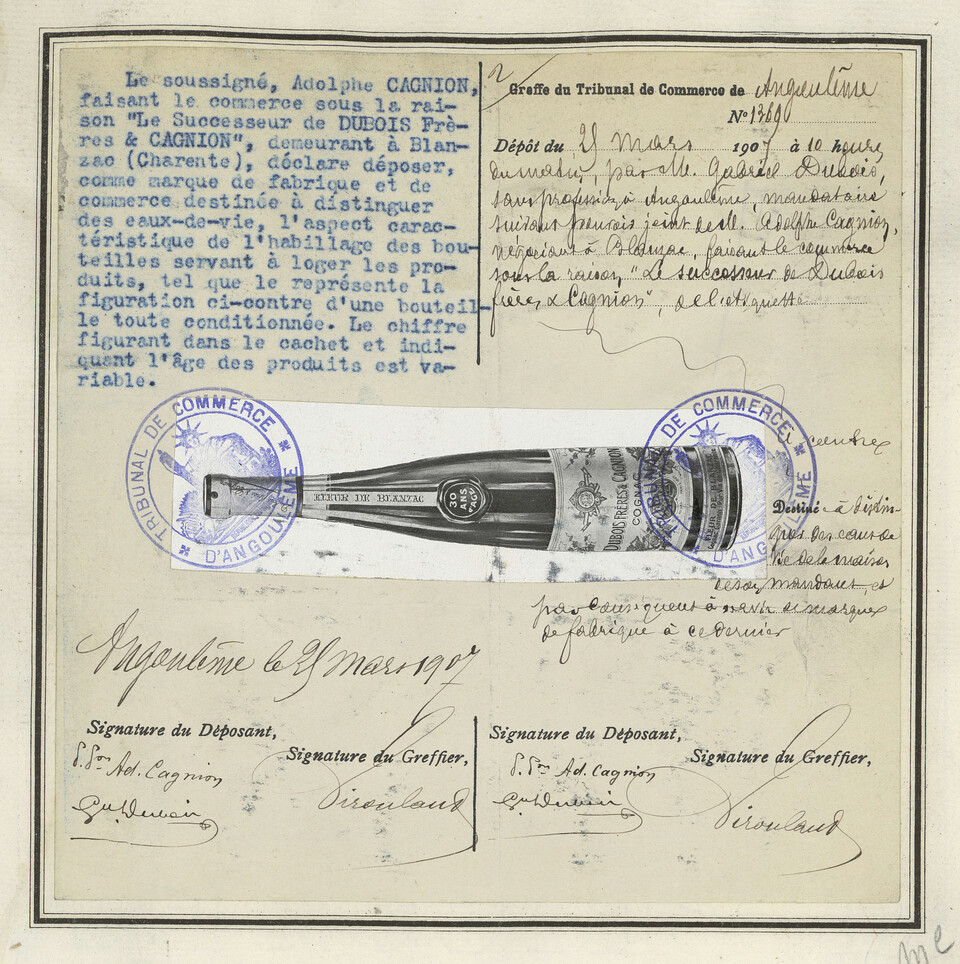 Le soussigné, Adolphe CAGNION,
faisant le commerce sous la rai-
son "Le Successeur de DUBOIS Frè-
res & CAGNION", demeurant à Blan-
zac (Charente), déclare déposer,
comme marque de fabrique et de
commerce destinée à distinguer
des eaux-de-vie, l'aspect carac-
téristique de l'habillage des bou-
teilles servant à loger les pro-
duits, tel que le représente la
figuration ci-contre d'une bouteil-
le toute conditionnée. Le chiffre
figurant dans le cachet et indi-
quant l'âge des produits est va-
riable.
Greffe du Tribunal de Commerce de Angoulême
No 1369
Dépôt du 25 Mars 1907 à 10 heures
du matin, par M. Gabriel Dubois,
sans profession à Angoulême, mandataire
suivant pouvoir joint de M. Adolphe Cagnion,
négociant à Blanzac, faisant le commerce
sous la raison, "Le successeur de Dubois
frères & Cagnion", de l'étiquette
ci contre
Destiné à distin-
guer des eaux de
vie de la maison
de son mandant, et
par conséquent à servir de marque
de fabrique à ce dernier
TRIBUNAL DE COMMERCE
D'ANGOULÊME
FLEUR DE BLANZAC
30
ANS
D'AGE
DUBOIS FRÈRES & CAGNION
COGNAC
FLEUR DE BLANZAC
TRIBUNAL DE COMMERCE
D'ANGOULÊME
Angoulême le 25 Mars 1907
Signature du Déposant,
Signature du Greffier,
P. Pon Ad. Cagnion
Signature du Déposant,
Signature du Greffier,
P. Pon Ad. Cagnion
me